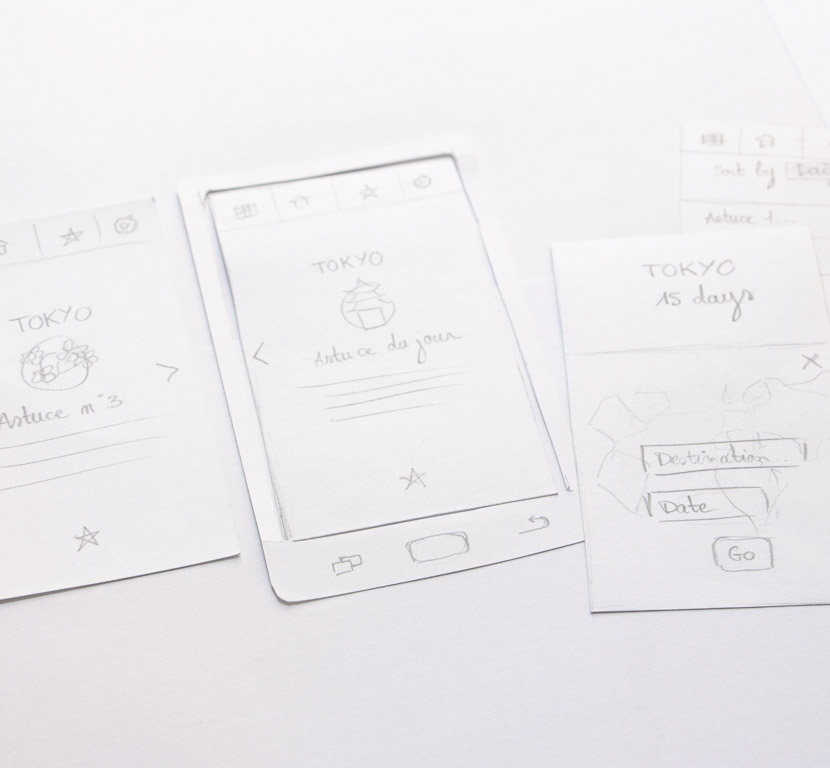 TOKYO
Astuce n°3
TOKYO
Astuce du jour
Sort by
Astuce 1...
TOKYO
15 days
Destination...
Date
Go